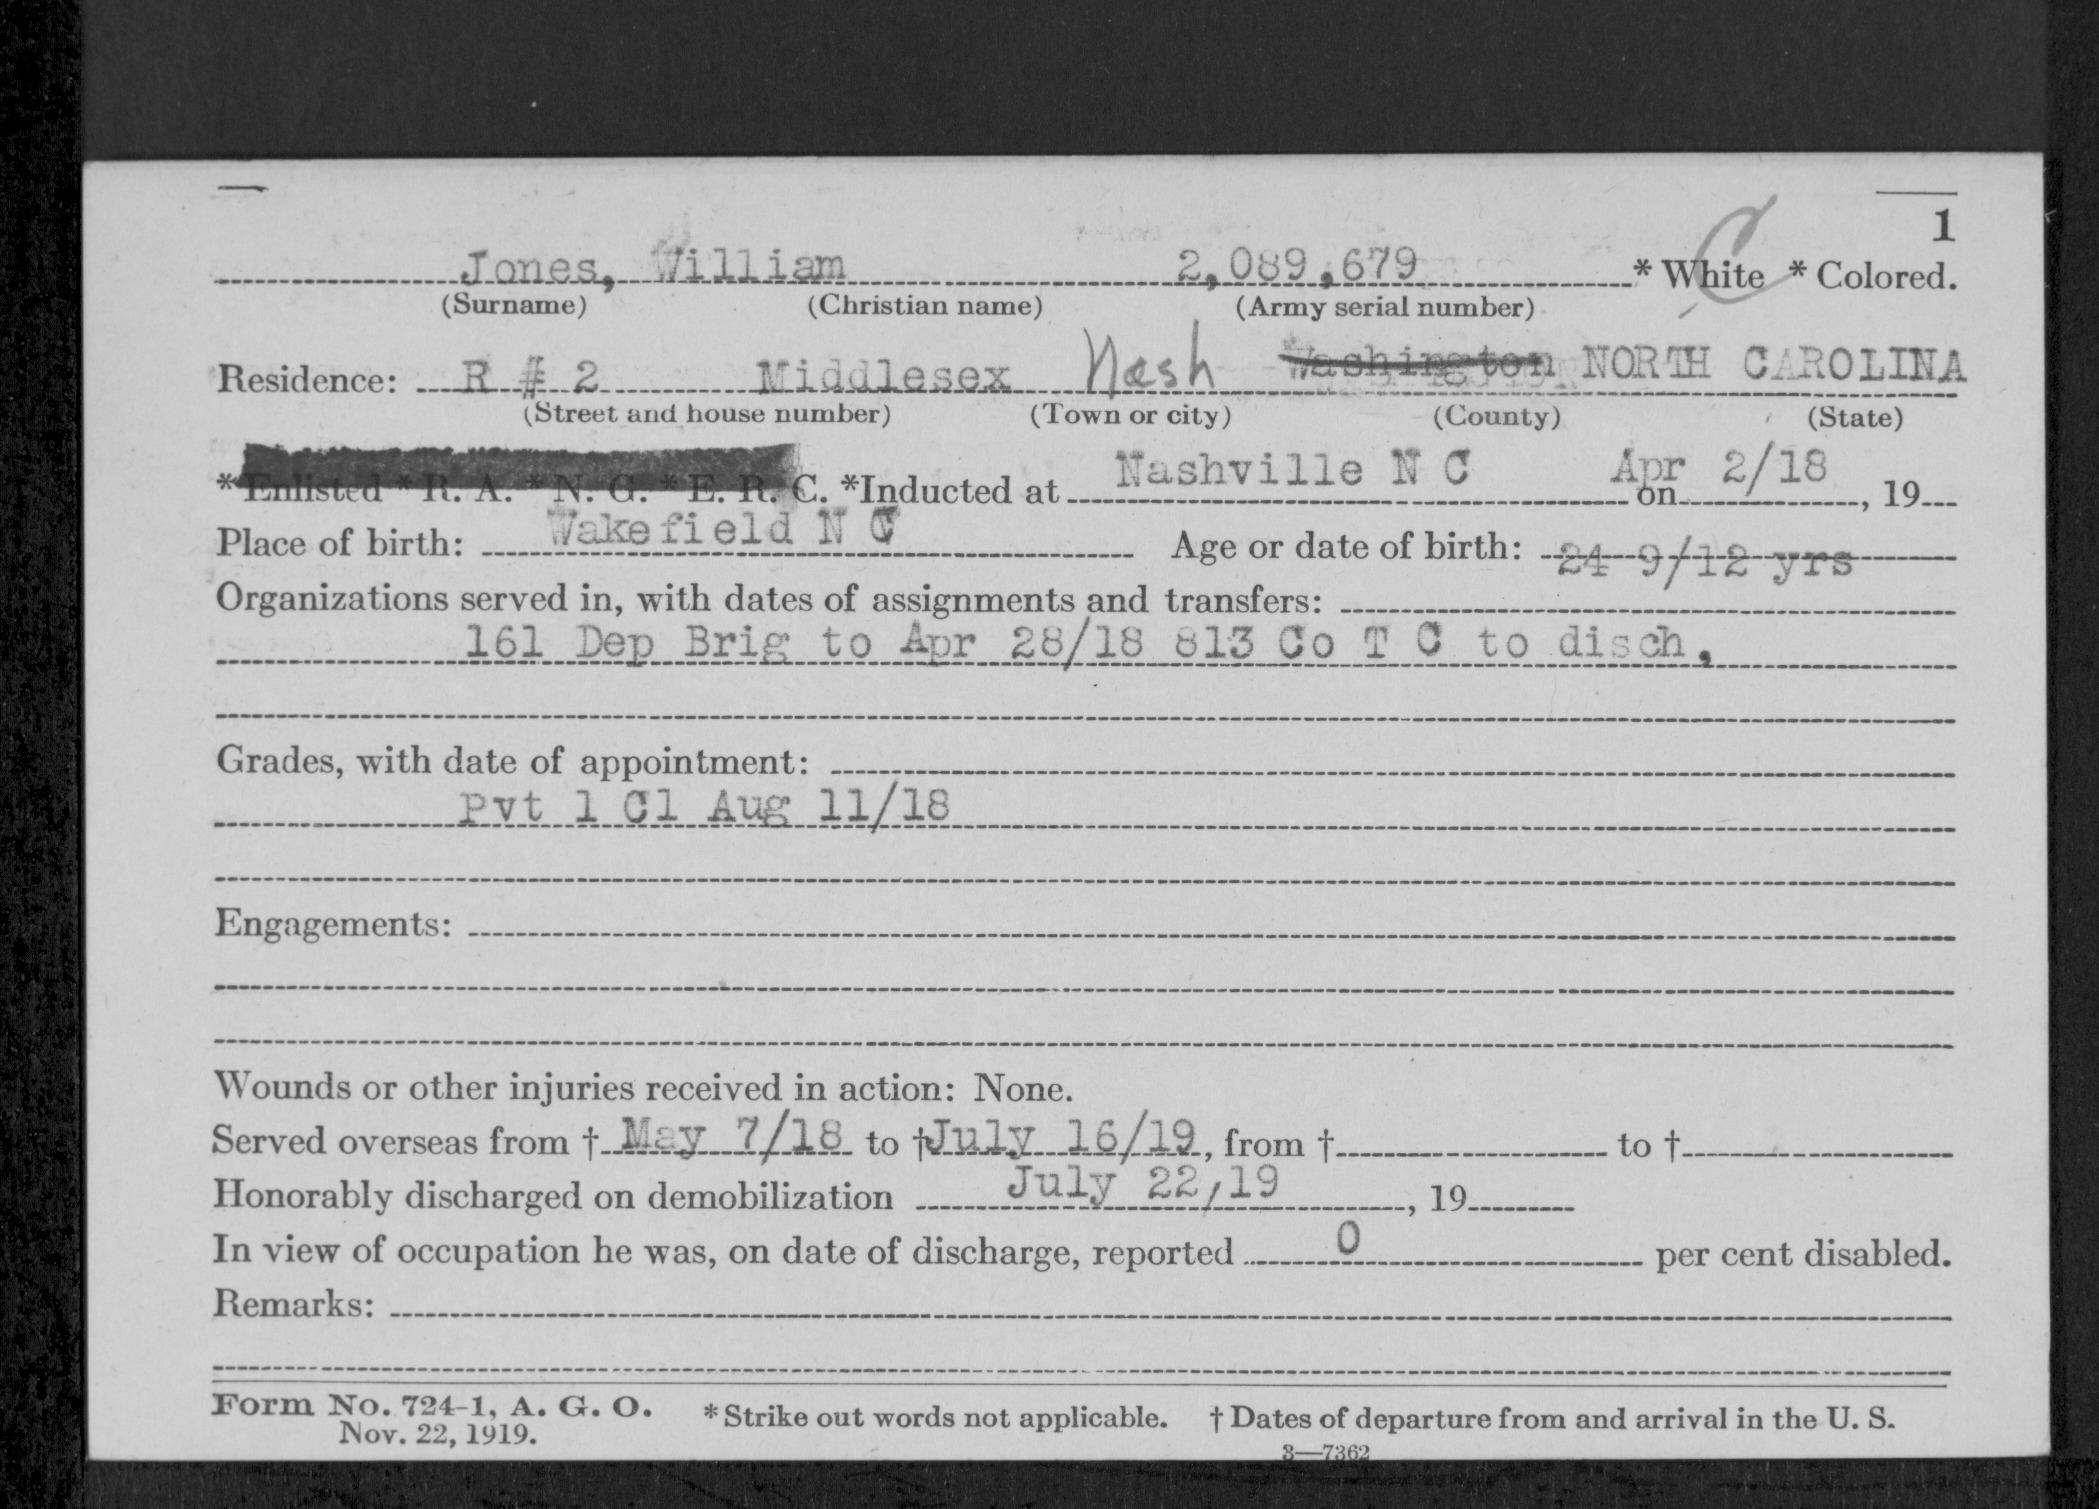 1
Jones, William 2,089,679 * White * Colored. C
(Surname) (Christian name) (Army serial number)
Residence: R # 2 Middlesex Nash Washington NORTH CAROLINA
(Street and house number) (Town or city) (County) (State)
* Enlisted * R. A. * N. G. * E. R. C. *Inducted at Nashville N C on Apr 2/18, 19
Place of birth: Wakefield N C Age or date of birth: 24 9/12 yrs
Organizations served in, with dates of assignments and transfers:
161 Dep Brig to Apr 28/18 813 Co T C to disch,
Grades, with date of appointment:
Pvt 1 Cl Aug 11/18
Engagements:
Wounds or other injuries received in action: None.
Served overseas from † May 7/18 to † July 16/19, from † to †
Honorably discharged on demobilization July 22/19, 19
In view of occupation he was, on date of discharge, reported 0 per cent disabled.
Remarks:
Form No. 724-1, A. G. O. * Strike out words not applicable. † Dates of departure from and arrival in the U. S.
Nov. 22, 1919.
3—7362